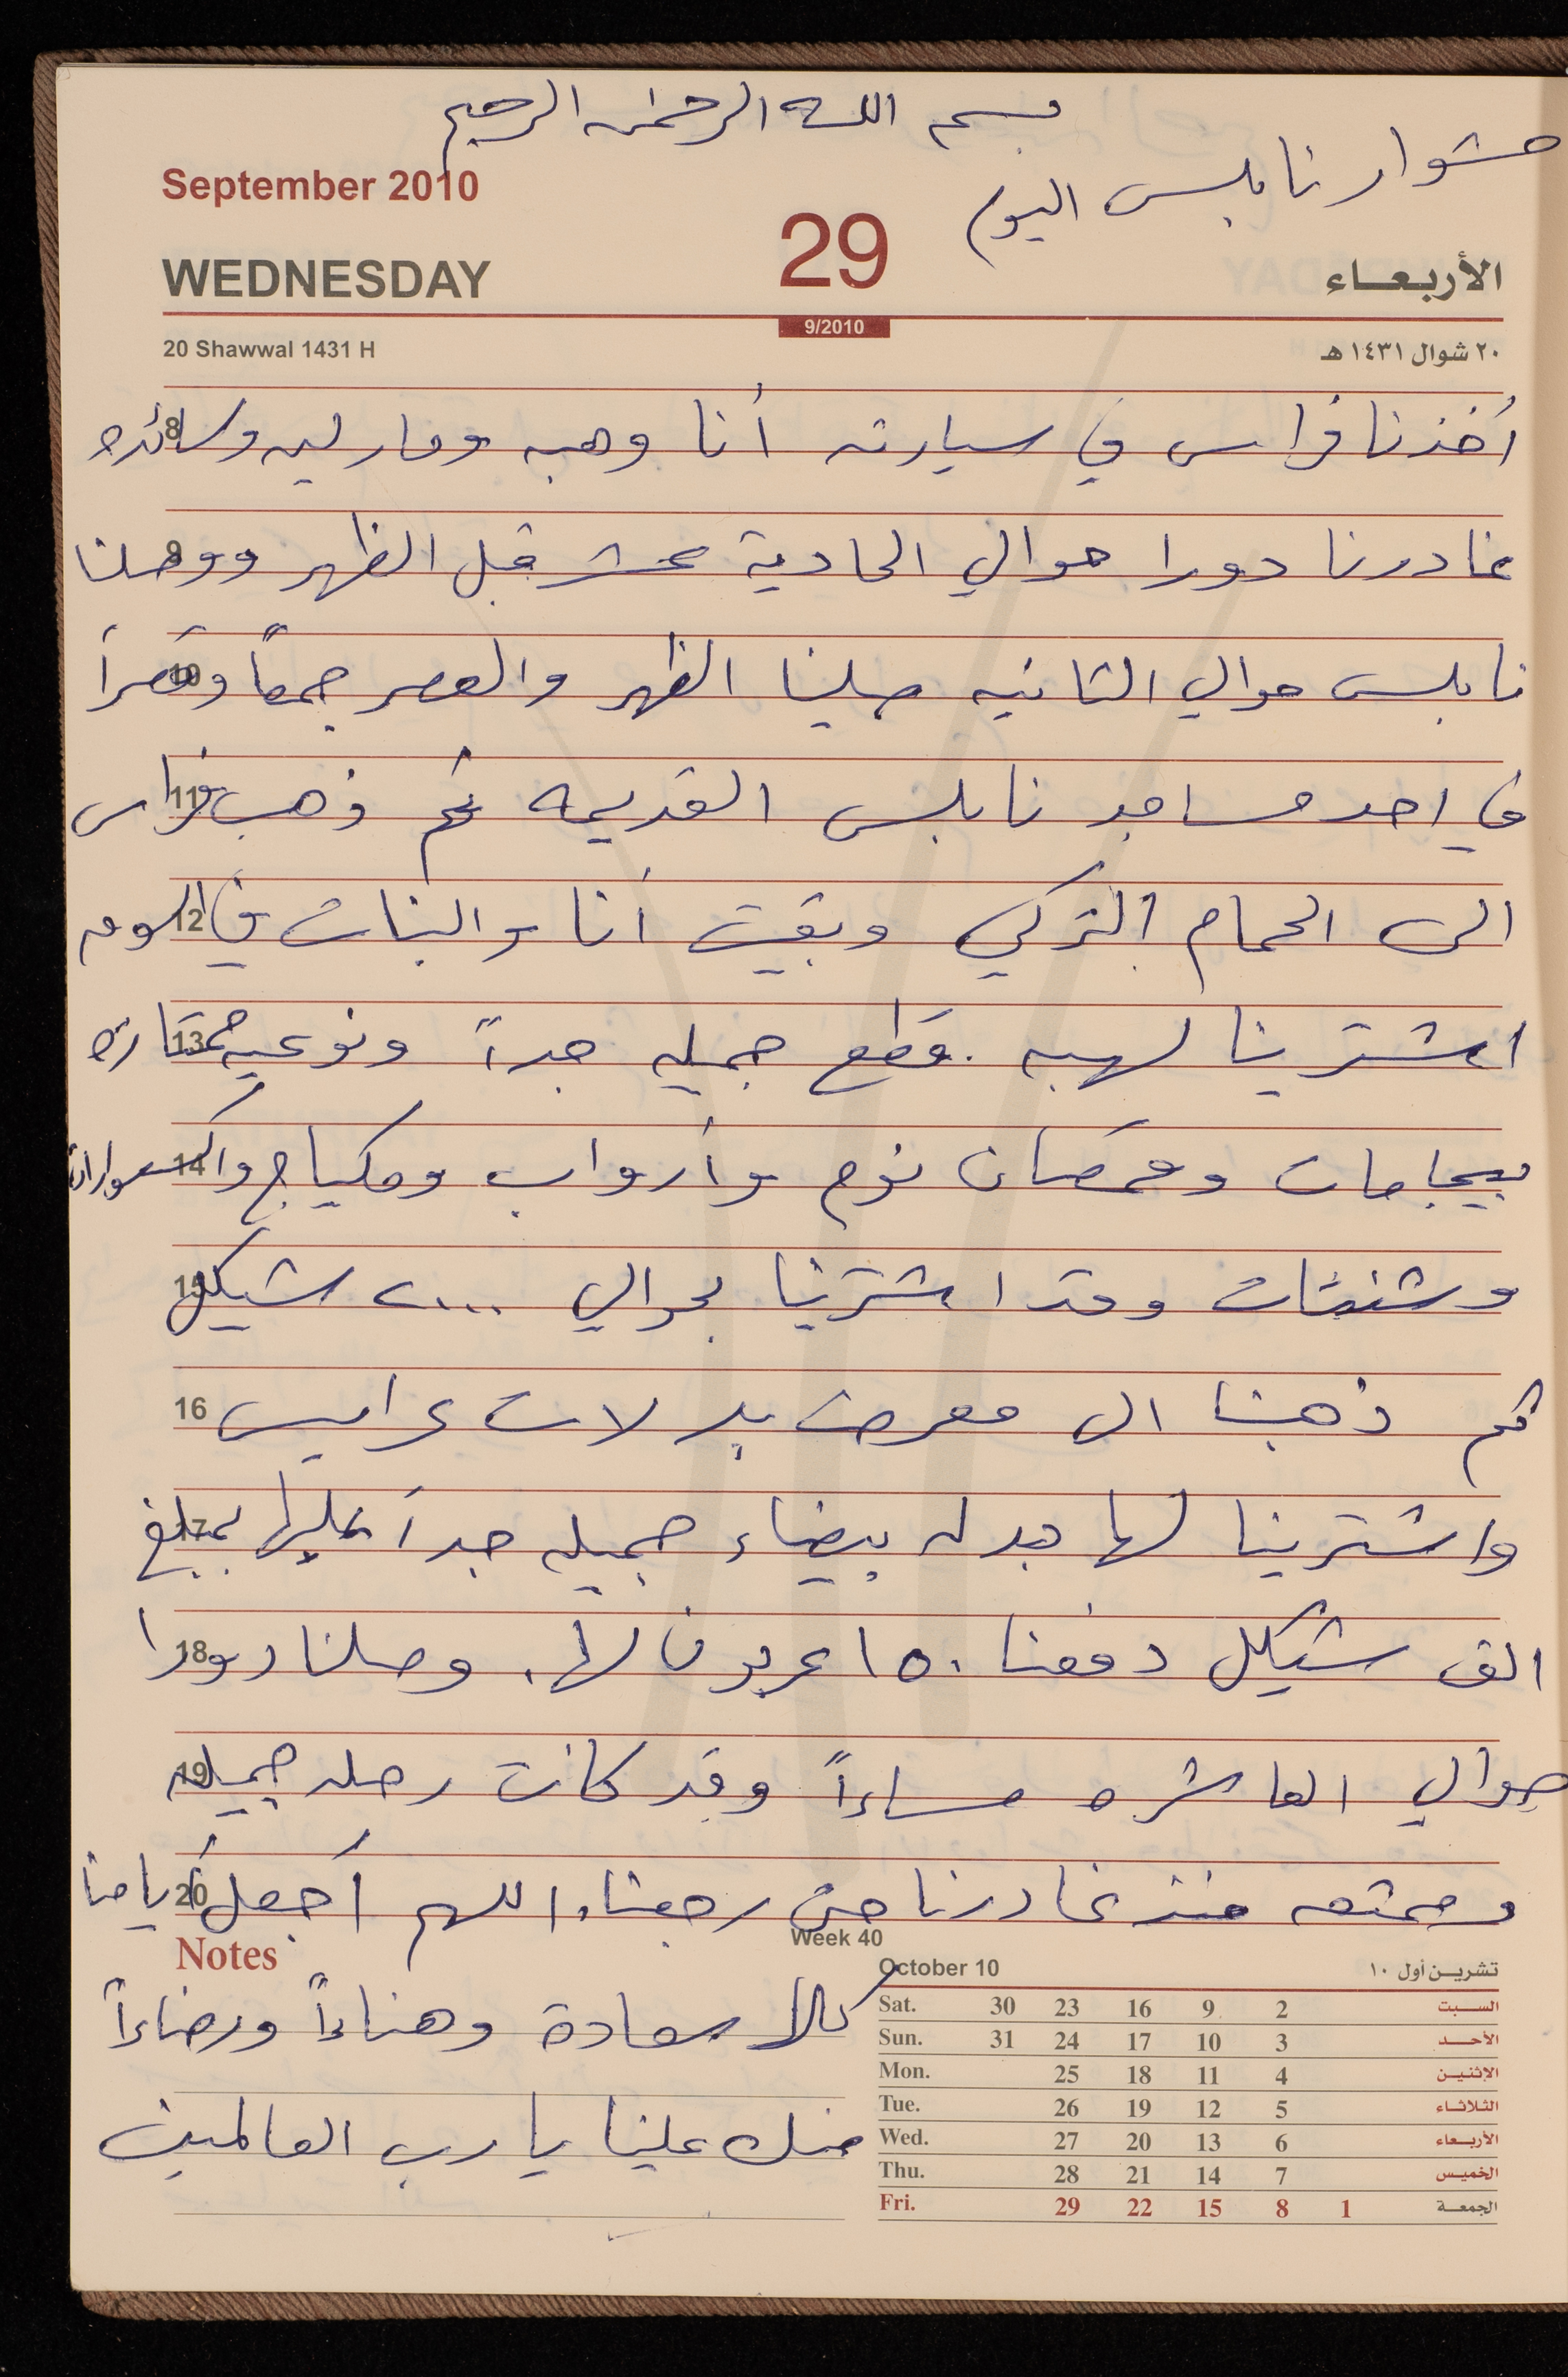 بسم الله الرحمن الرحيم
مشوار نابلس اليوم
September 2010
29
WEDNESDAY
الأربعاء
9/2010
20 Shawwal 1431 H
٢٠ شوال ١٤٣١ هـ
أخذنا فراس في سيارته أنا وهبه ومارليه وسائده
8
غادرنا دورا حوالي الحادية عشر قبل الظهر ووصلنا
9
نابلس حوالي الثانيه صلينا الظهر والعصر جمعاً وقصراً
10
في احد مساجد نابلس القديمه ثم ذهب فراس
11
الى الحمام التركي وبقيت أنا والبنات في السوم
12
اشترينا لهبه قطع جميله جداً ونوعيه ممتازه
13
بيجامات وقمصان نوم وأرواب ومكياج واكسسوارات
14
وشنتات وقد اشترينا بحوالي ٢٠٠٠ شيكل
15
ثم ذهبنا الى معرض بدلات عرايس
16
واشترينا لها بدله بيضاء جميله جداً عليها بمبلغ
17
الف شيكل دفعنا ١٥٠ عربون لها. وصلنا دورا
18
حوالي العاشره مساءاً وقد كانت رحله جميله
19
وممتعه منذ غادرنا حتى رجعنا، اللهم أجعل أيامنا
20
Notes
كلها سعادة وهناءاً ورضاءاً
منك علينا يا رب العالمين
Week 40
October 10
تشرين أول ١٠
Sat. 30 23 16 9 2 السبت
Sun. 31 24 17 10 3 الأحد
Mon. 25 18 11 4 الإثنين
Tue. 26 19 12 5 الثلاثاء
Wed. 27 20 13 6 الأربعاء
Thu. 28 21 14 7 الخميس
Fri. 29 22 15 8 1 الجمعة